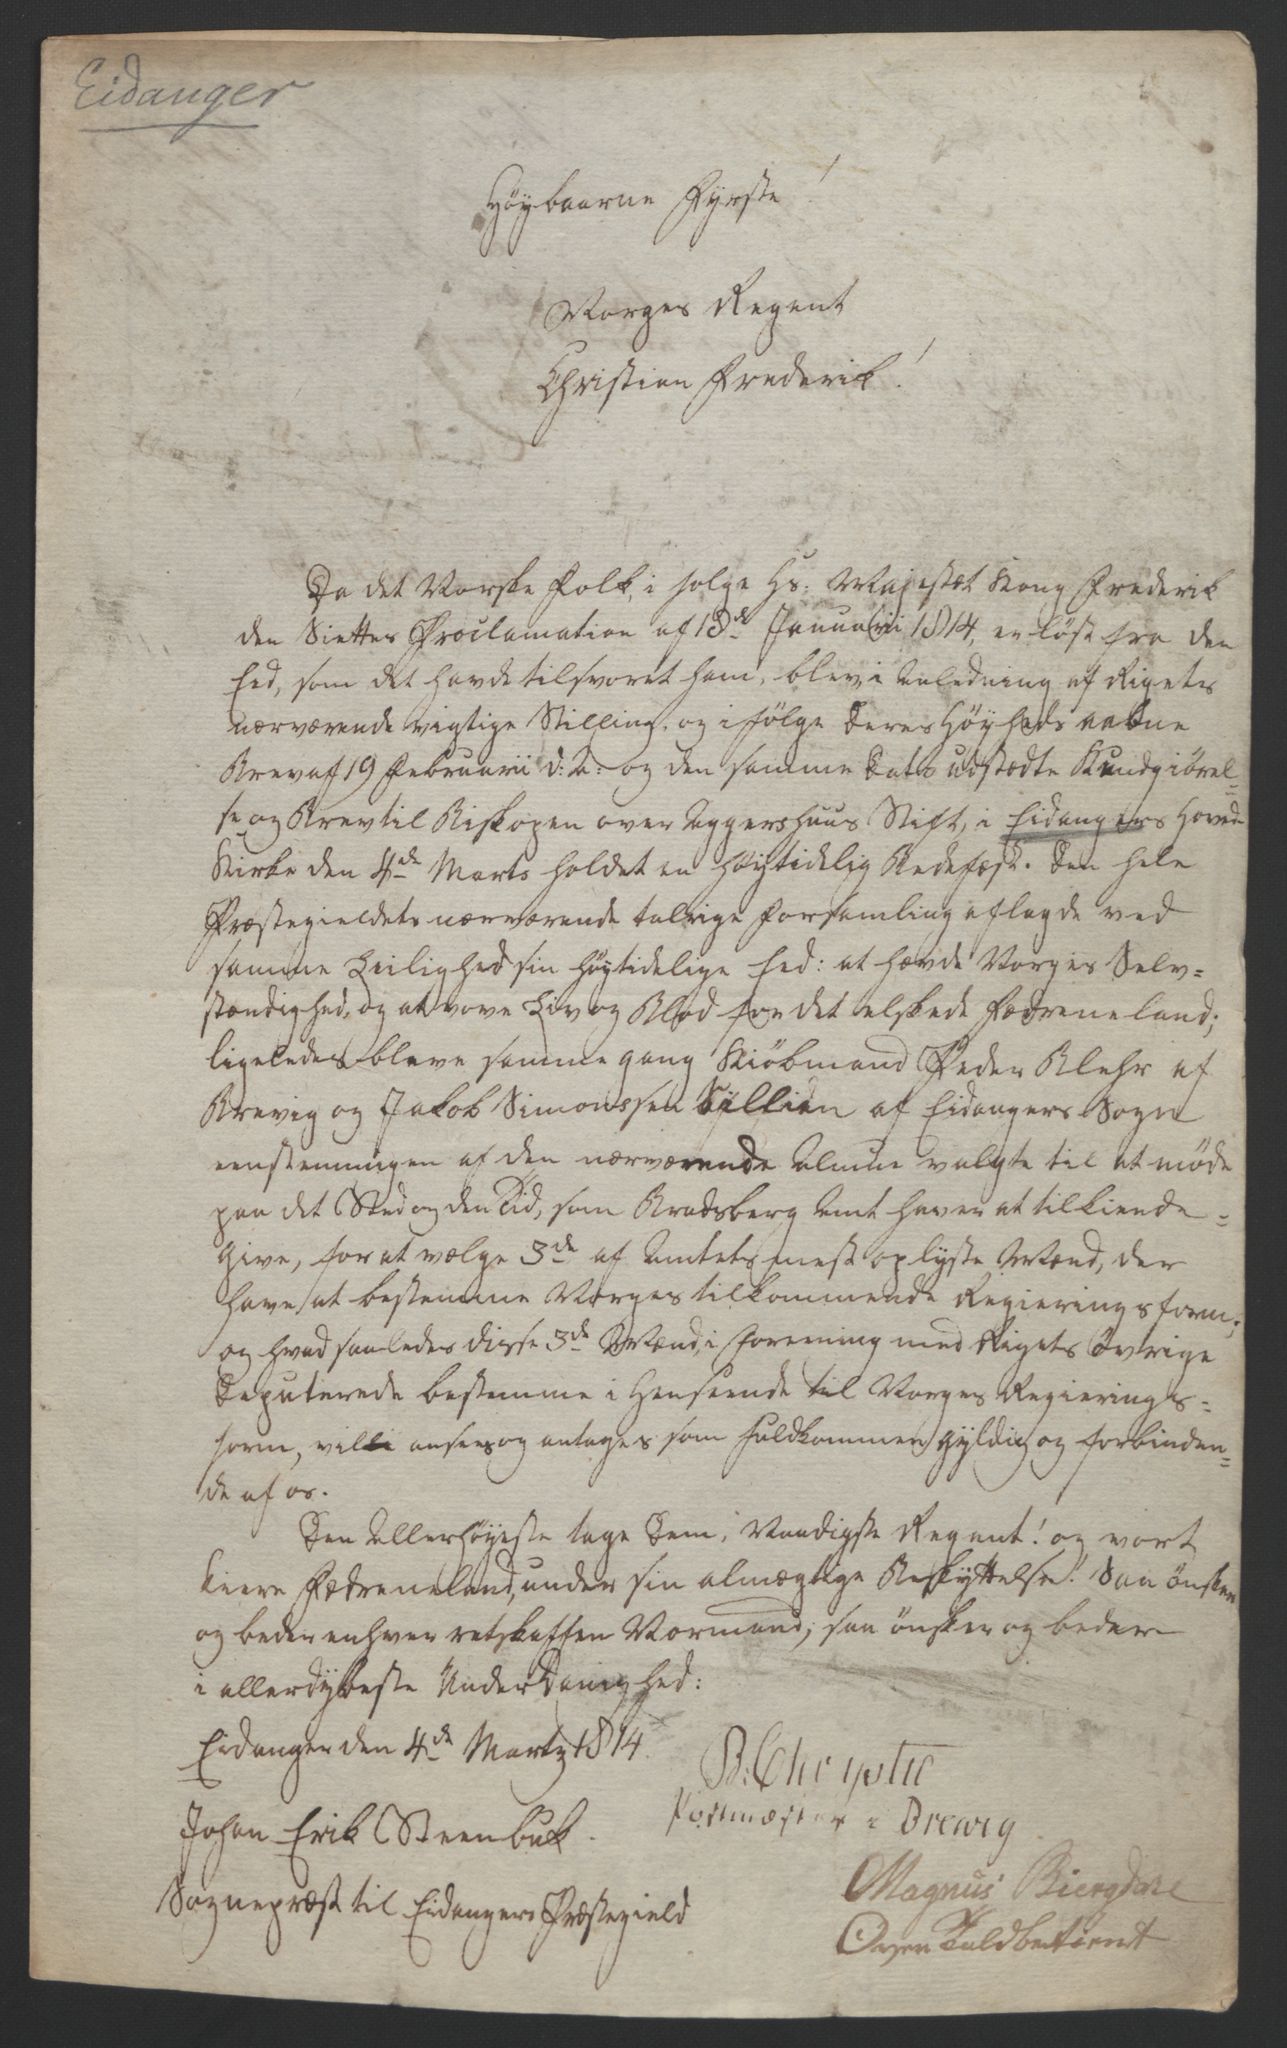 Eidanger
Høybaarne Fyrste!
Norges Regent
Christian Frederik!
Da det Norske Folk, i følge Hs: Majestæt Kong Frederik
den Siettes Proclamation af 18de Januarii 1814, er løst fra den
Eed, som det havde tilsvoret ham, blev i Anledning af Rigets
nærværende vigtige Stilling, og ifølge Deres Høyheds aabne
Brev af 19 Februarii d: A: og den samme Dato udstædte Kundgiørel=
se og Brev til Biskopen over Aggershuus Stift, i Eidangers Hoved
Kirke den 4de Marts holdet en høytidelig Bedefæst. Den hele
Præstegieldets nærværende talrige Forsamling aflagde ved
samme Leilighed sin høytidelige Eed: at hævde Norges Selv=
stændighed, og at vove Liv og Blod for det elskede Fædreneland;
ligeledes bleve samme gang Kiöbmand Peder Blehr af
Brevig og Jakob Simonssen af Eidangers Sogn
eenstemmigen af den nærværende Almue valgte til at møde
paa det Sted og den Tid, som Bradsberg Amt haver at tilkiende=
give, for at vælge 3de af Amtets mest oplyste Mænd, der
have at bestemme Norges tilkommende Regieringsform;
og hvad saaledes disse 3de Mænd, i Forening med Rigets øvrige
Deputerede bestemme i Henseende til Norges Regierings=
form, ville ansees og antages som fuldkommen gyldig og forbinden=
de af os.
Den Allerhøyeste tage Dem, Naadigste Regent! og vort
kiere Fædreneland, under sin almægtige Beskyttelse! Saa ønsker
og beder enhver retskaffen Normand; saa ønsker og beder
i allerdybeste Underdanighed:
Eidanger den 4de Martz 1814.
Johan Erik Steenbuk.
Sognepræst til Eidangers Præstegield
B: Chrystie
Postmæster i Brewig
Magnus Biergdahl
Toldbetient